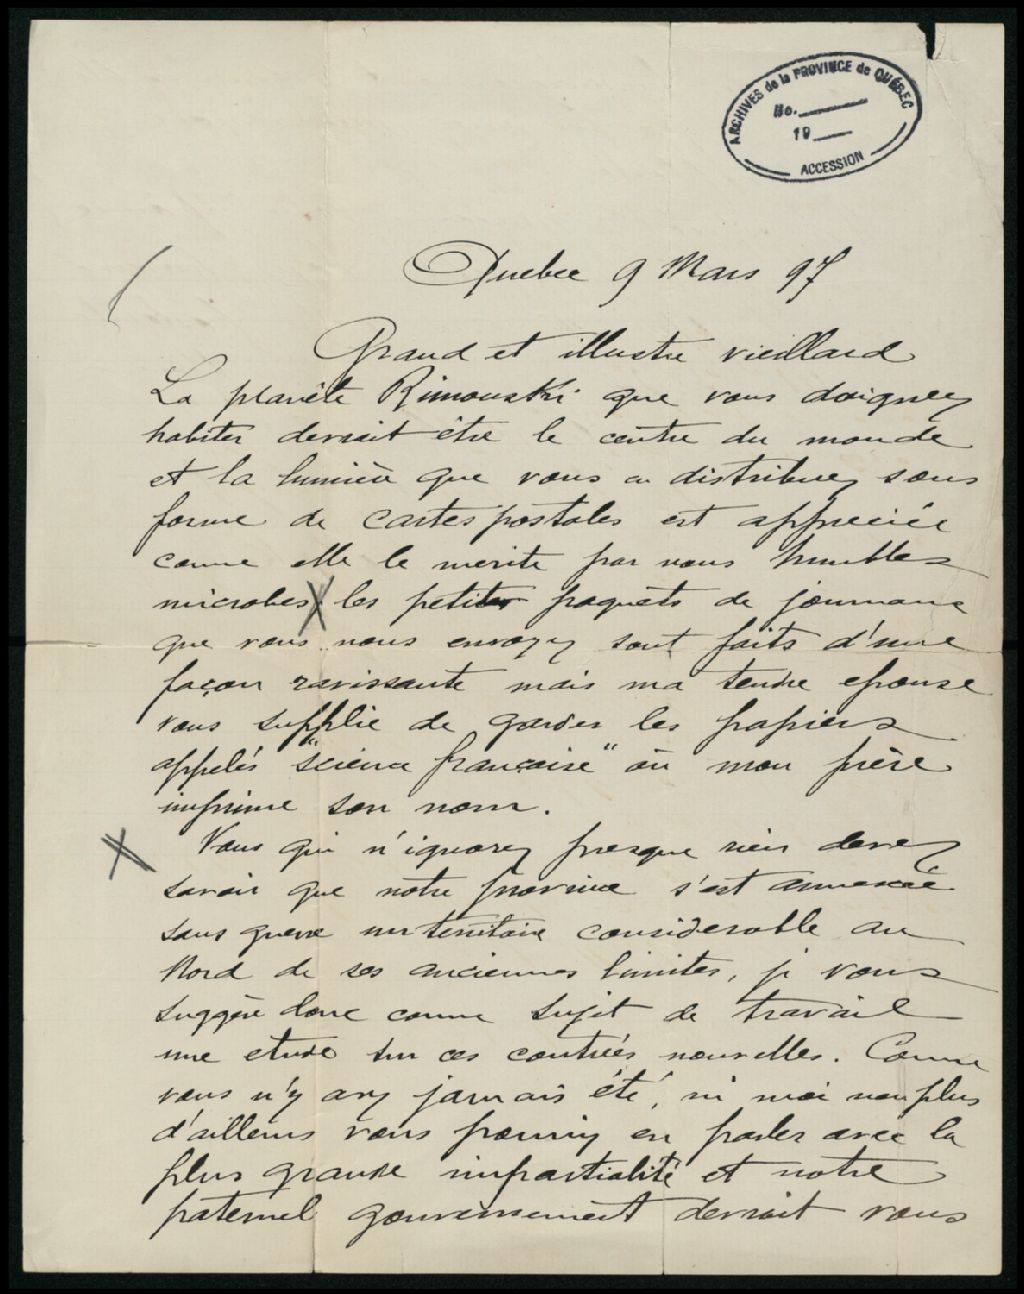 ARCHIVES de la PROVINCE de QUÉBEC
No.
19
ACCESSION
Quebec 9 Mars 97
Grand et illustre vieillard
La planête Rimouski que vous daignez
habiter devrait être le centre du monde
et la lumière que vous en distribuez sous
forme de cartes postales est appreciée
comme elle le merite par nous humbles
microbes X les petits paquets de journaux
que vous nous envoyez sont faits d'une
façon ravissante mais ma tendre epouse
vous supplie de garder les papiers
appelés "science française" où mon frère
imprime son nom.
X Vous qui n'ignorez presque rien devez
savoir que notre province s'est annexée
sans guerre un territoire considerable au
Nord de ses anciennes limites, je vous
suggère donc comme sujet de travail
une etude sur ces contrées nouvelles. Comme
vous n'y avez jamais été, ni moi non plus
d'ailleurs vous pourriez en parler avec la
plus grande impartialité et notre
paternel gouvernement devrait vous